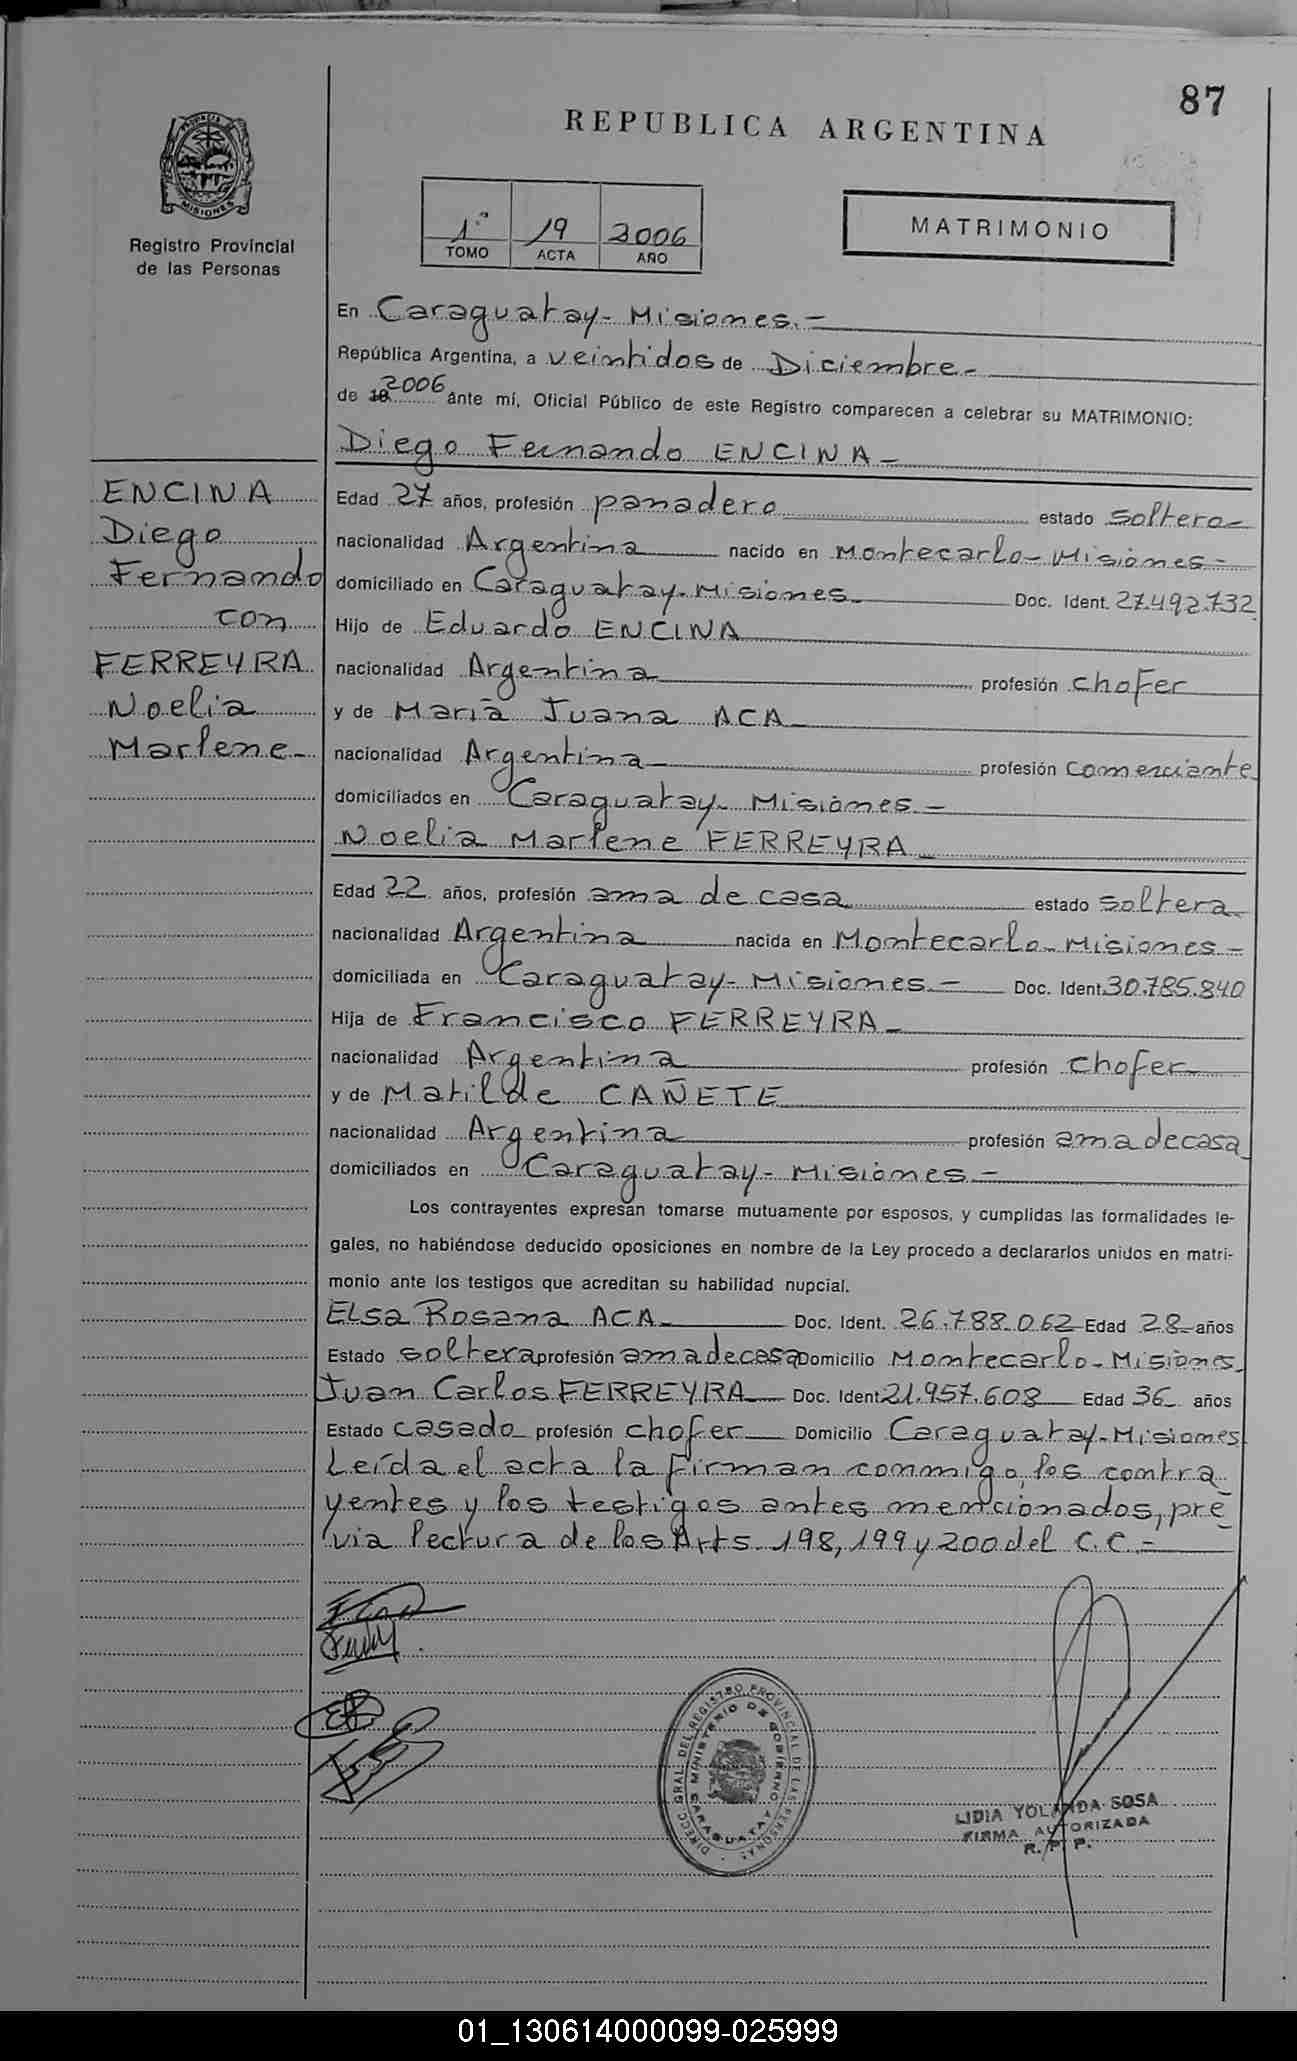 87
REPUBLICA ARGENTINA
PROVINCIA DE
MISIONES
Registro Provincial
de las Personas
1º 19 2006
TOMO ACTA AÑO
MATRIMONIO
En Caraguatay- Misiones.-
República Argentina, a veintidos de Diciembre-
de 19 2006 ante mí, Oficial Público de este Registro comparecen a celebrar su MATRIMONIO:
Diego Fernando ENCINA-
ENCINA
Diego
Fernando
con
FERREYRA
Noelia
Marlene-
Edad 27 años, profesión panadero estado soltero-
nacionalidad Argentina nacido en Montecarlo-Misiones-
domiciliado en Caraguatay-Misiones- Doc. Ident. 27.492.732
Hijo de Eduardo ENCINA
nacionalidad Argentina profesión chofer
y de María Juana ACA-
nacionalidad Argentina- profesión comerciante
domiciliados en Caraguatay- Misiones-
Noelia Marlene FERREYRA-
Edad 22 años, profesión ama de casa estado soltera-
nacionalidad Argentina nacida en Montecarlo-Misiones-
domiciliada en Caraguatay-Misiones.- Doc. Ident. 30.785.840
Hija de Francisco FERREYRA-
nacionalidad Argentina profesión chofer-
y de Matilde CAÑETE
nacionalidad Argentina profesión ama de casa
domiciliados en Caraguatay-Misiones-
Los contrayentes expresan tomarse mutuamente por esposos, y cumplidas las formalidades le-
gales, no habiéndose deducido oposiciones en nombre de la Ley procedo a declararlos unidos en matri-
monio ante los testigos que acreditan su habilidad nupcial.
Elsa Rosana ACA- Doc. Ident. 26.788.062 Edad 28 años
Estado soltera profesión ama de casa Domicilio Montecarlo-Misiones.
Juan Carlos FERREYRA Doc. Ident 21.957.608 Edad 36 años
Estado casado profesión chofer Domicilio Caraguatay-Misiones
Leída el acta la firman conmigo, los contra
yentes y los testigos antes mencionados, pre
via lectura de los Arts. 198, 199 y 200 del C.C.-
DIRECC. GRAL. DEL REGISTRO PROVINCIAL DE LAS PERSONAS
MINISTERIO DE GOBIERNO
CARAGUATAY
LIDIA YOLANDA SOSA
FIRMA AUTORIZADA
R. P. P.
01_130614000099-025999